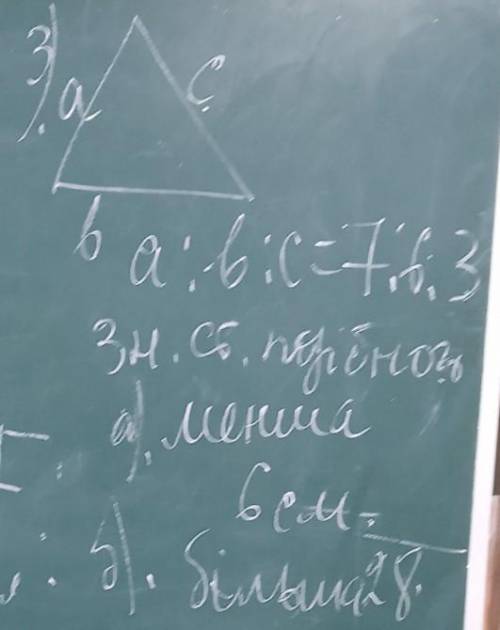 3).
a c
b
a : b : c = 7 : 6 : 3
Зн. ст. подібного
а). менша
6 см.
б). більша 28.